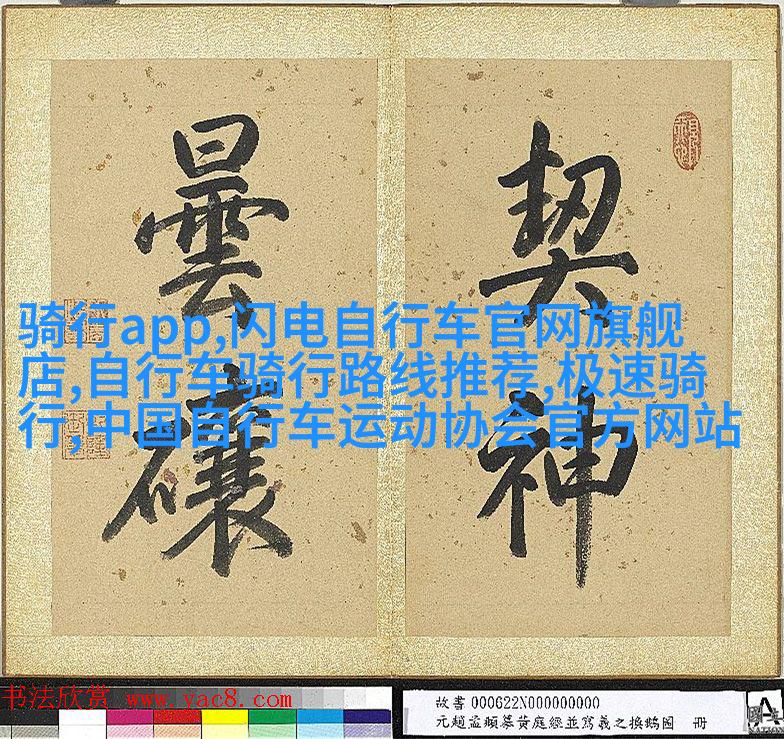 契神
曇礞
骑行app,闪电自行车官网旗舰
店,自行车骑行路线推荐,极速骑
行,中国自行车运动协会官方网站
书法欣赏 www.yac8.com
故書 000622N000000000
元趙孟頫摹黃庭經並寫羲之換鵝圖 冊